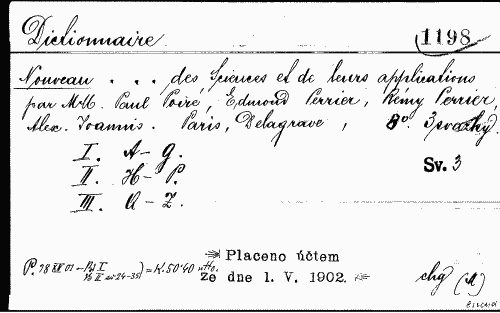 Dictionnaire 1198
Nouveau . . . des Sciences et de leurs applications
par MM. Paul Poiré, Edmond Perrier, Rémy Perrier,
Alex. Joannis. Paris, Delagrave, 8º. 3 svazky.
I. A-G.
II. H-P. Sv. 3
III. Q-Z.
Placeno účtem
ze dne 1. V. 1902.
= K. 50'40 ntto.